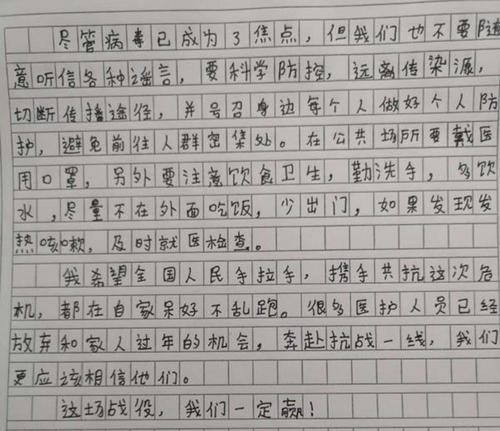 尽管病毒已成为了焦点，但我们也不要随
意听信各种谣言，要科学防控，远离传染源，
切断传播途径，并号召身边每个人做好个人防
护，避免前往人群密集处。在公共场所要戴医
用口罩，另外要注意饮食卫生，勤洗手，多饮
水，尽量不在外面吃饭，少出门，如果发现发
热咳嗽，及时就医检查。
我希望全国人民手拉手，携手共抗这次危
机，都在自家呆好不乱跑。很多医护人员已经
放弃和家人过年的机会，奔赴抗战一线，我们
更应该相信他们。
这场战役，我们一定赢！